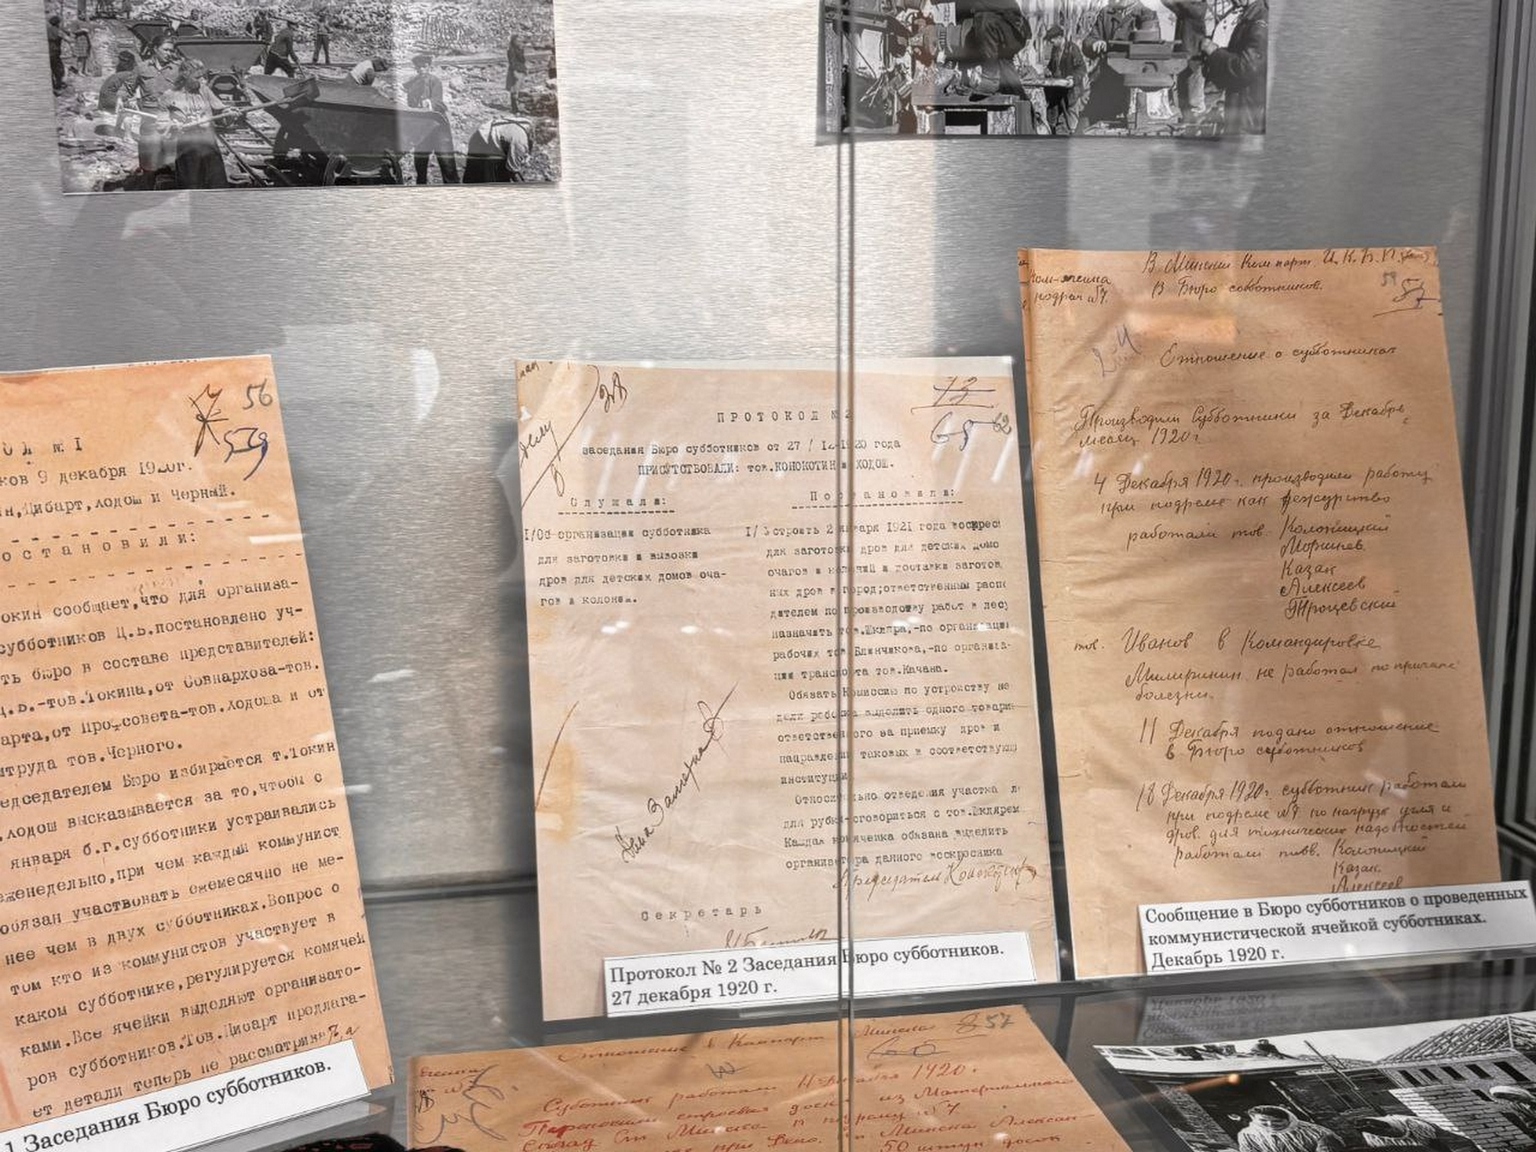 56
579
ОЛ №1
ков 9 декабря 1920г.
н,Цибарт,Ходош и Черный.
ОСТАНОВИЛИ:
окин сообщает,что для организа-
субботников Ц.Б.постановлено уч-
ть бюро в составе представителей:
Ц.Б.-тов.Токина,от Совнархоза-тов.
арта,от профсовета-тов.Ходоша и от
мтруда тов.Черного.
едседателем Бюро избирается т.Токин
.Ходош высказывается за то,чтобы с
января б.г.субботники устраивались
еженедельно,при чем каждый коммунист
обязан участвовать ежемесячно не ме-
нее чем в двух субботниках.Вопрос о
том кто из коммунистов участвует в
каком субботнике,регулируется комячей
ками.Все ячейки выделяют организато-
ров субботников.Тов.Цибарт предлага-
ет детали теперь не рассматривать,а
1 Заседания Бюро субботников.
62
ПРОТОКОЛ №2
заседания Бюро субботников от 27 / 12-1920 года
ПРИСУТСТВОВАЛИ: тов.КОНОКОТИН и ХОДОШ.
Слушали:
1/Об организации субботника
для заготовки и вывозки
дров для детских домов оча-
гов и колоний.
Постановили:
1/ Устроить 2 января 1921 года воскрес
для заготовки дров для детских домо
очагов и колоний и доставки заготов
ных дров в город;ответственным расп
дителем по производству работ в лесу
назначить тов.Шкляра,-по организации
рабочих тов.Блинчикова,-по организа-
ции транспорта тов.Качана.
Обязать Комиссию по устройству не
дели ребенка выделить одного товари
ответственного за приемку дров и
направлении таковых в соответствующ
институции.
Относительно отведения участка л
для рубки-сговориться с тов.Шкляром
Каждая комячейка обязана выделить
организатора данного воскресника
Председатель
Секретарь
Протокол № 2 Заседания Бюро субботников.
27 декабря 1920 г.
В Минский Компарт Ц.К.Б.П.
В Бюро субботников.
Ком-ячейка
Отношение о субботниках
Производили Субботники за Декабрь
месяц 1920г.
4 Декабря 1920г. производили работу
при подрёме как дежурство
работали тов. Колоницкий
Моринев
Казак
Алексеев
Троцевский
тов. Иванов в Командировке
Милиринин не работал по причине
болезни.
11 Декабря подано отношение
в Бюро субботников
18 Декабря 1920г. субботник работали
при подреме №7. по нагрузке угля и
дров для технических надобностей
работали товв. Колоницкий
Казак
Алексеев
Сообщение в Бюро субботников о проведенных
коммунистической ячейкой субботниках.
Декабрь 1920 г.
Отношение в Компарт Минска 57
Субботник работали 4 декабря 1920г.